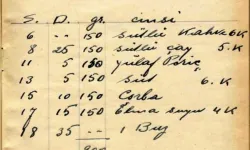 S. D. gr. cinsi
6 -- 150 sütlü Kahve 6K
8 25 150 sütlü çay 5.K
11 5 150 yulaf
13 5 150 süt 6.K
15 10 150 Çorba
17 15 150 Elma suyu 4K
18 35 -- 1 Buz